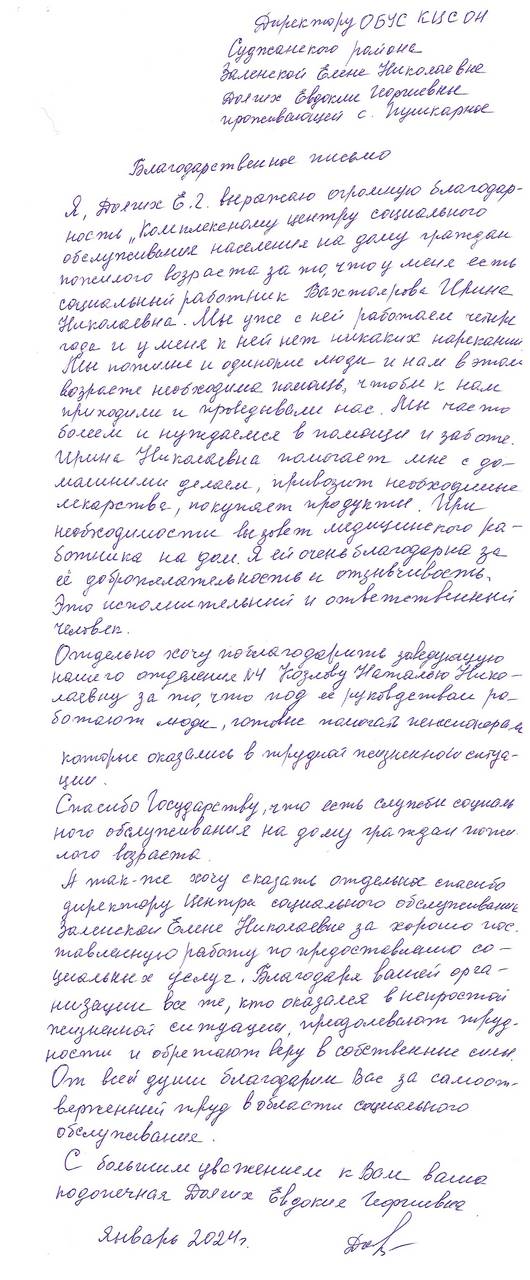 Директору ОБУС КЦСОН
Суджанского района
Заленской Елене Николаевне
Долгих Евдокии Георгиевны
проживающей с. Пушкарное
Благодарственное письмо
Я, Долгих Е.Г. выражаю огромную благодар-
ность „Комплексному центру социального
обслуживания населения на дому граждан
пожилого возраста за то, что у меня есть
социальный работник Вахтоярова Ирина
Николаевна. Мы уже с ней работаем четыре
года и у меня к ней нет никаких нареканий
Мы пожилые и одинокие люди и нам в этом
возрасте необходима помощь, чтобы к нам
приходили и проведывали нас. Мы часто
болеем и нуждаемся в помощи и заботе.
Ирина Николаевна помогает мне с до-
машними делами, привозит необходимые
лекарства, покупает продукты. При
необходимости вызовет медицинского ра-
ботника на дом. Я ей очень благодарна за
её доброжелательность и отзывчивость.
Это исполнительный и ответственный
человек.
Отдельно хочу поблагодарить заведующую
нашего отделения №4 Козлову Наталью Нико-
лаевну за то, что под её руководством ра-
ботают люди, готовые помогать пенсионерам
которые оказались в трудной жизненной ситуа-
ции.
Спасибо Государству, что есть службы социаль
ного обслуживания на дому граждан пожи
лого возраста.
А так-же хочу сказать отдельное спасибо
директору Центра социального обслуживания
Заленской Елене Николаевне за хорошо пос.
тавленную работу по предоставлению со-
циальных услуг. Благодаря вашей орга-
низации все те, кто оказался в непростой
жизненной ситуации, преодолевают труд-
ности и обретают веру в собственные силы.
От всей души благодарим Вас за самоот-
верженный труд в области социального
обслуживания.
С большим уважением к Вам ваша
подопечная Долгих Евдокия Георгиевна
Январь 2024г.